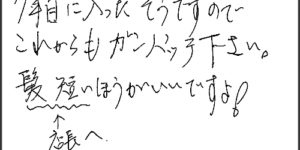 7年目に入ったそうですので
これからもガンバッテ下さい。
髪 短いほうがいいですよ!
↑
店長へ